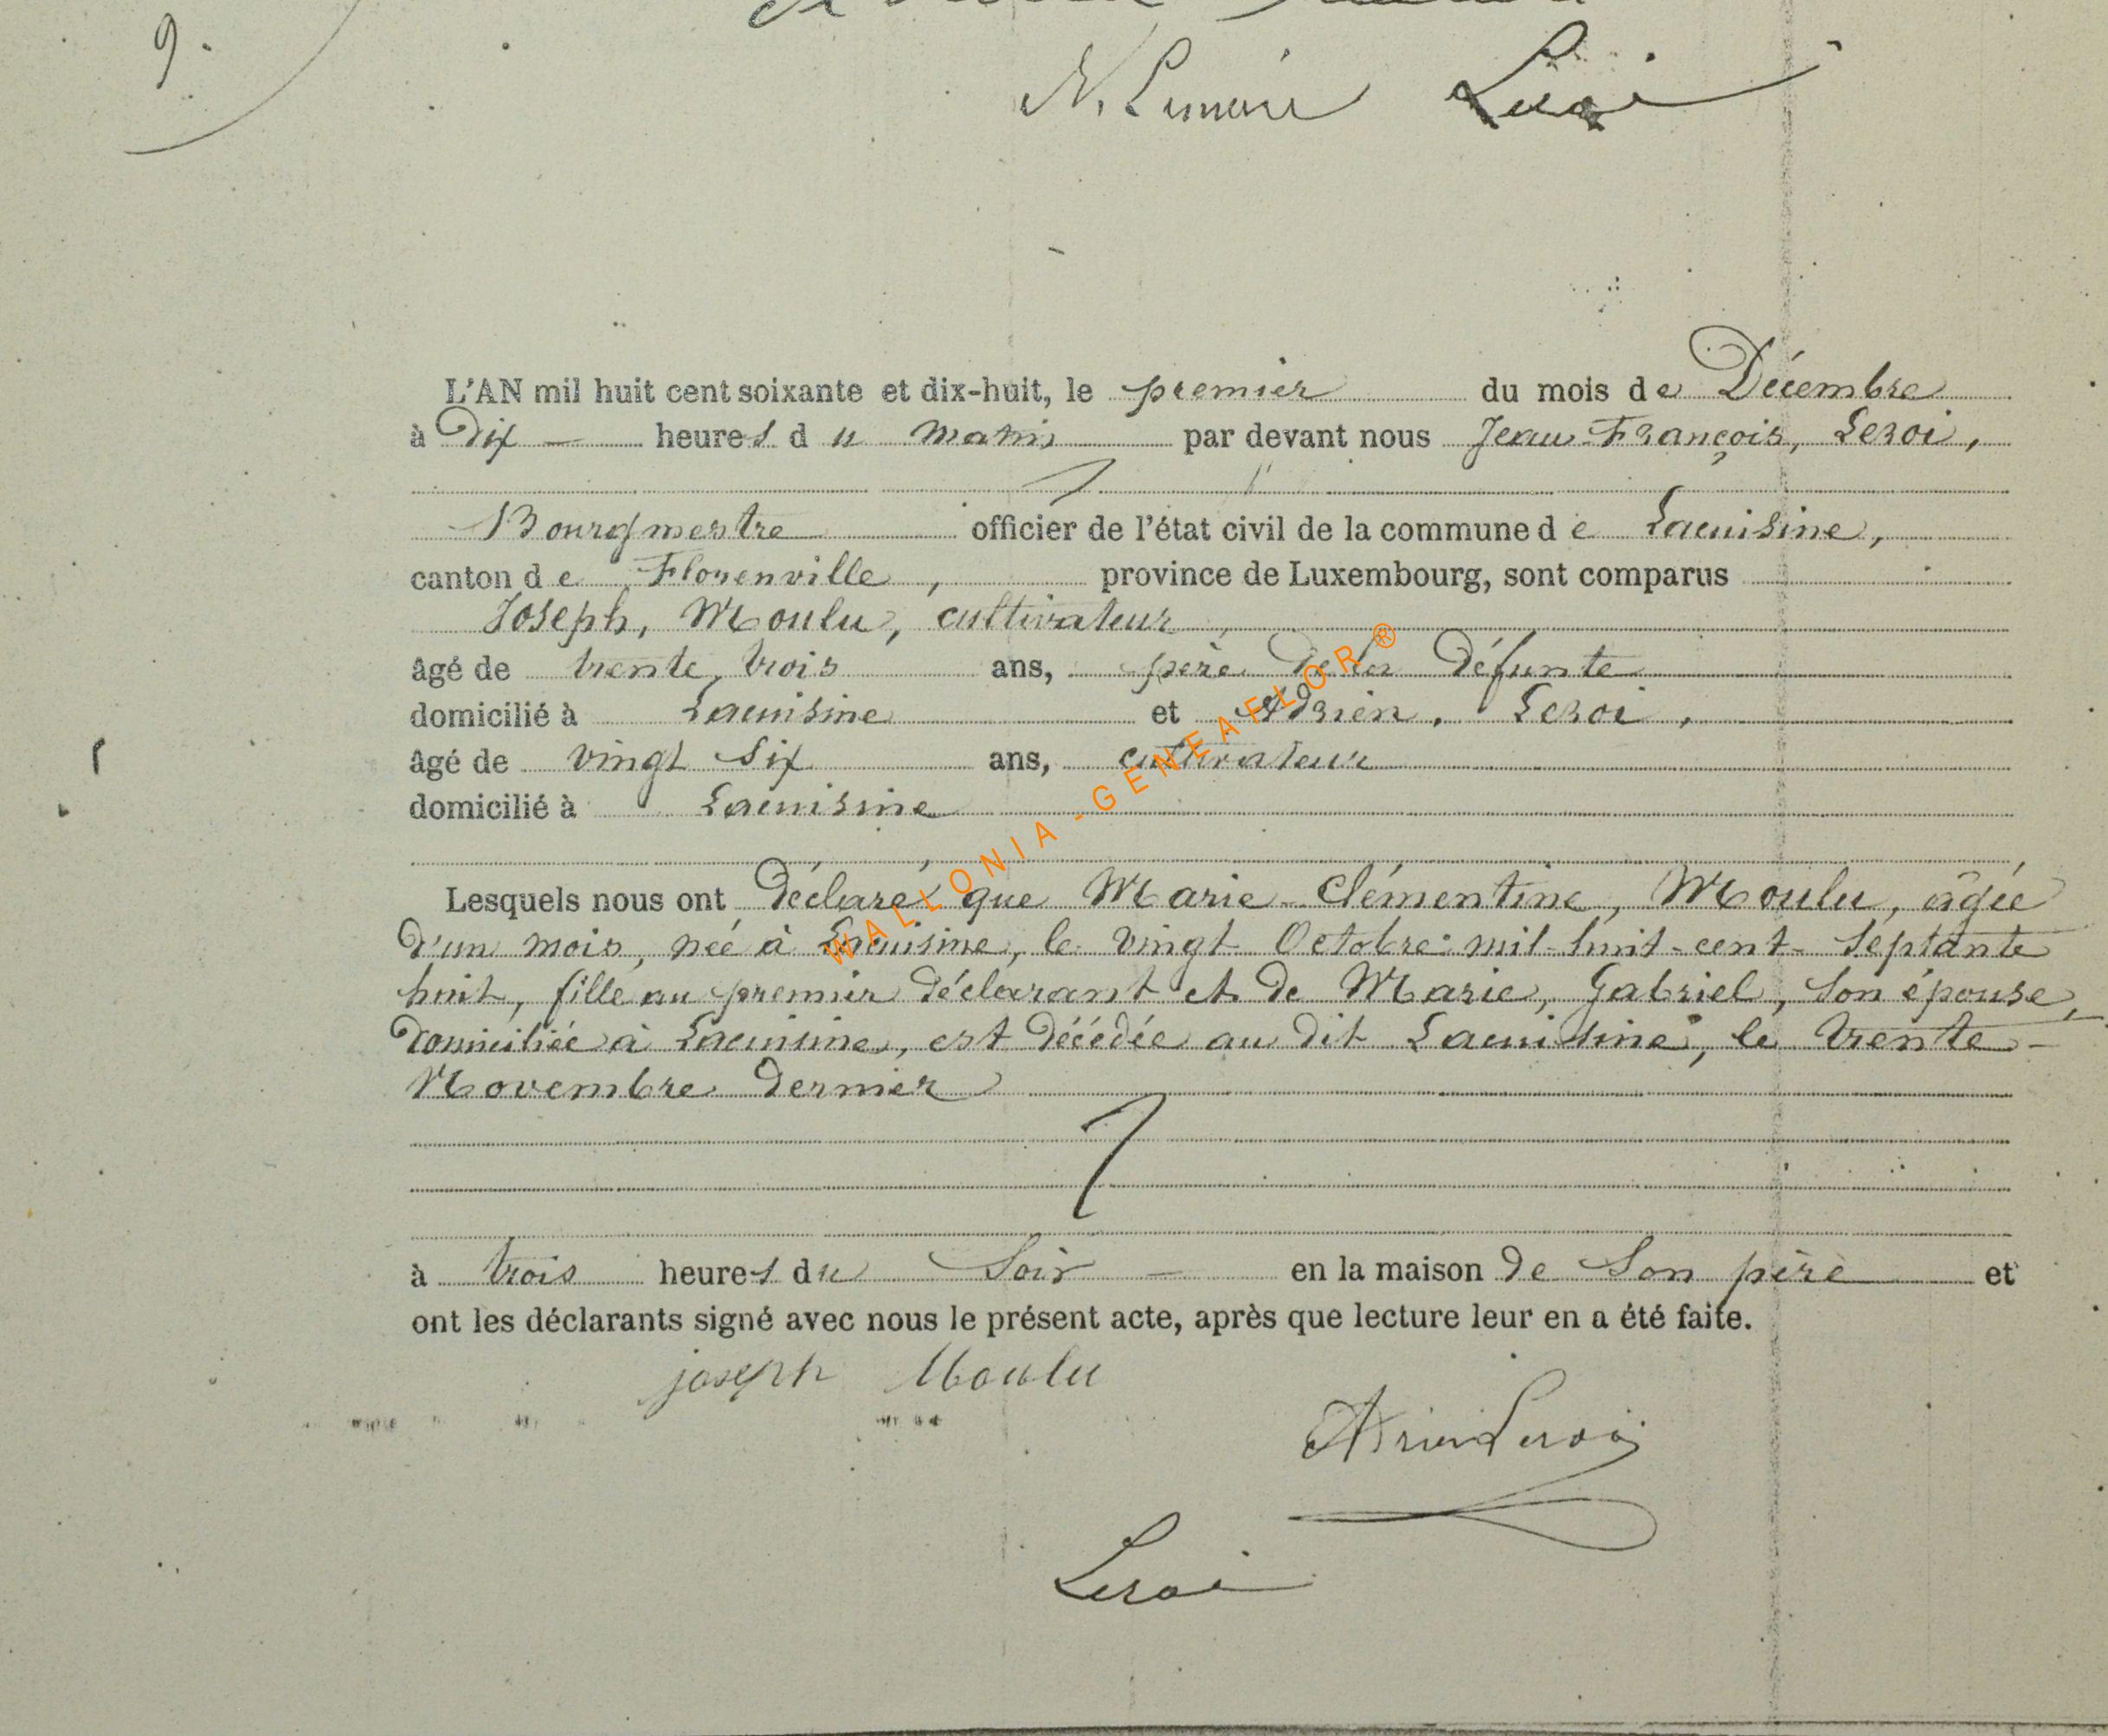 9.
N. Lemaire Leroi
L'AN mil huit cent soixante et dix-huit, le premier du mois de Décembre
à Dix — heures du matin par devant nous Jean-François, Leroi,
Bourgmestre officier de l'état civil de la commune de Lacuisine,
canton de Florenville, province de Luxembourg, sont comparus
Joseph, Moulu, cultivateur,
âgé de trente, trois ans, père de la Défunte
domicilié à Lacuisine et Adrien, Leroi,
âgé de vingt six ans, cultivateur
domicilié à Lacuisine
Lesquels nous ont Déclaré que Marie-Clémentine, Moulu, âgée
D'un mois, née à Lacuisine, le vingt Octobre mil-huit-cent-septante
huit, fille au premier Déclarant et de Marie, Gabriel, son épouse,
Domiciliée à Lacuisine, est Décédée au dit Lacuisine, le trente-
Novembre Dernier
à trois heures du Soir — en la maison de Son père et
ont les déclarants signé avec nous le présent acte, après que lecture leur en a été faite.
joseph Moulu
Adrien Leroi
Leroi
WALLONIA - GENEAFLOR®